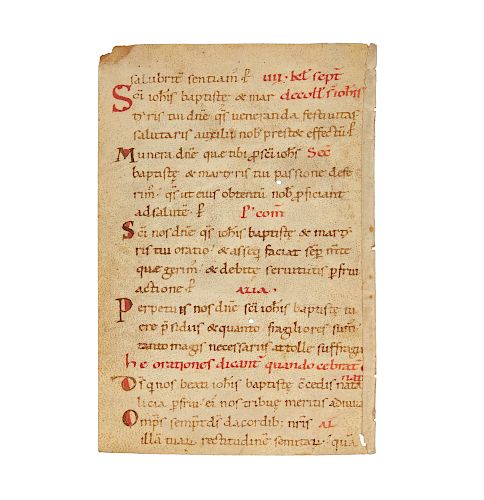 salubrit̄ sentiam᷒ p̄ IIII. kl̄ sept̄
Sc̄i ioħis baptistę & mar decoll̄ s̄ ioħis
tẏris tui dn̄e q̄s veneranda festivitas
salutaris auxilii nob̄ prestet effectū p̄
Munera dn̄e que tibi p̱ sc̄i ioħis Sec̄
baptistę & martẏris tui passione defe
rim᷒ q̄s ut eius obtentu nob̄ proficiant
ad salutē. p̄ p̄ com̄
Sc̄i nos dn̄e q̄s ioħis baptistę & martẏ
ris tui oratio & intellegere faciat sēp m̄te
que gerim᷒ & debitę servitutis p̱frui
actione p̄ ALIA.
Perpetuis nos dn̄e sc̄i ioħis baptistę tu
ere p̄sidiis & quanto fragiliores sum᷒
tanto magis necessariis attolle suffragiis
he orationes dicant᷒ quando celebrat᷒
nat̄
Ds̄ qui nos beati ioħis baptistę c̄cedis nata
licia p̱frui ei᷒ nos tribue meritis adiuva
Omp̄s semp̄ ds̄ da cordib᷒ nr̄is AL
illā tuar̄ rectitudinē semitar̄ quā